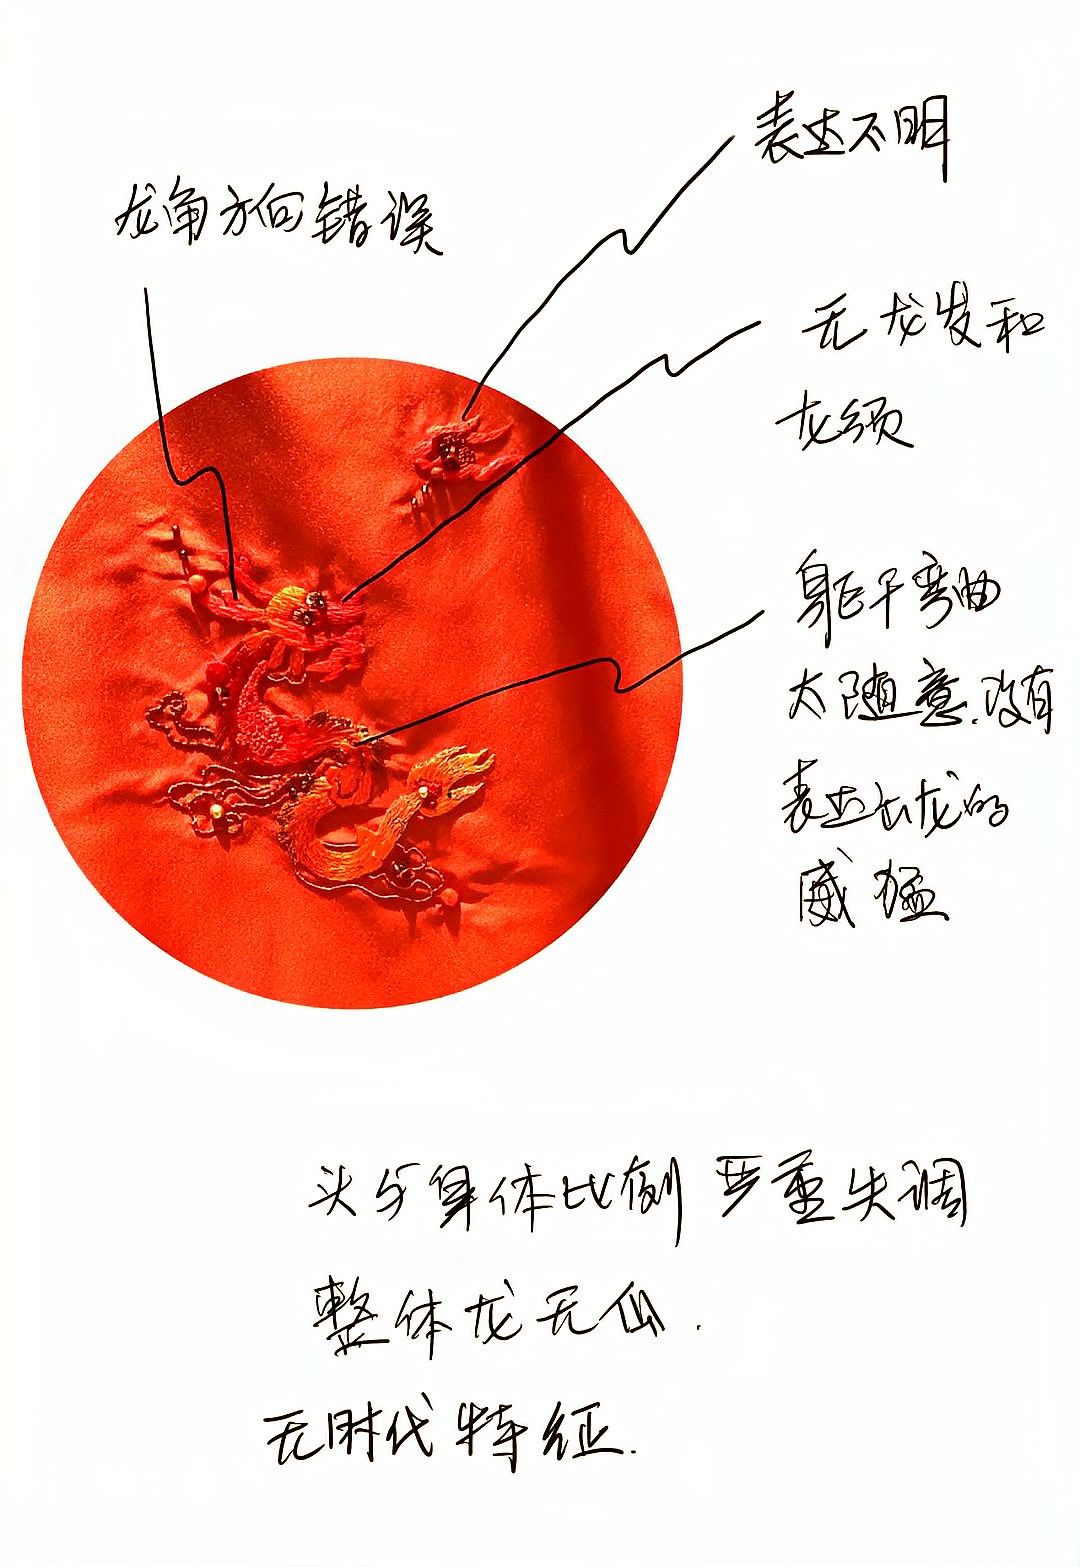 表达不明
龙角方向错误
无龙发和
龙须
躯干弯曲
太随意.没有
表达出龙的
威猛
头与身体比例严重失调
整体龙无仙.
无时代特征.